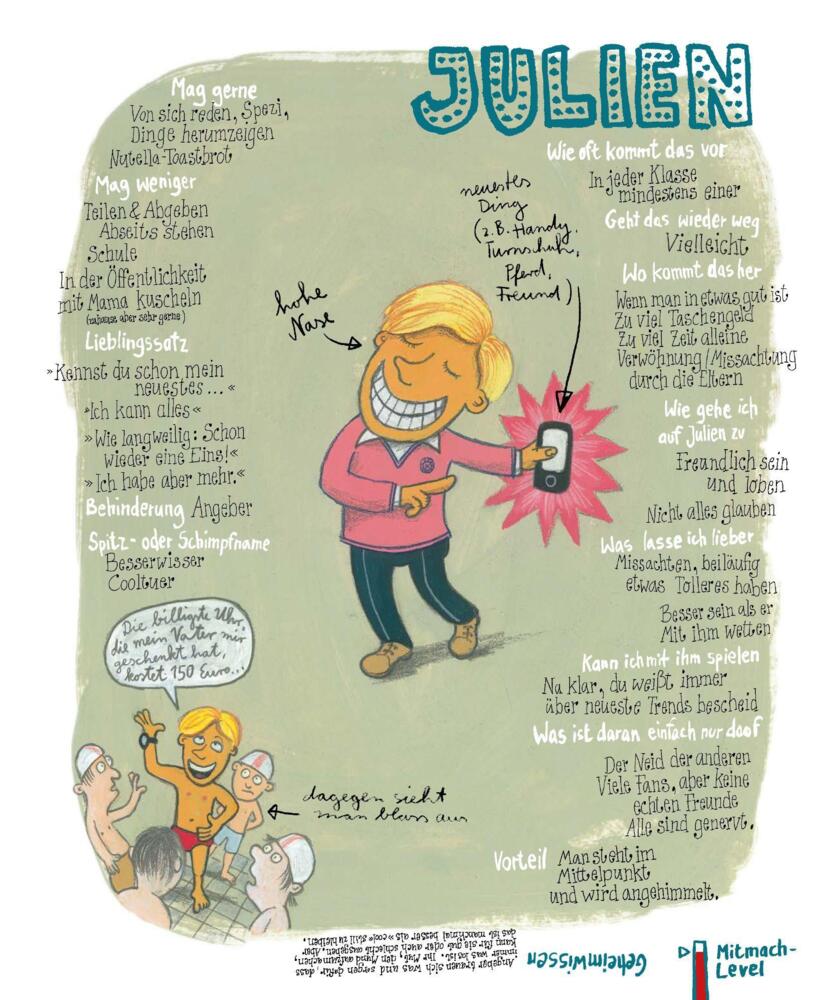 JULIEN
Mag gerne
Von sich reden, Spezi,
Dinge herumzeigen
Nutella-Toastbrot
Mag weniger
Teilen & Abgeben
Abseits stehen
Schule
In der Öffentlichkeit
mit Mama kuscheln
(zuhause aber sehr gerne)
Lieblingssatz
»Kennst du schon mein
neuestes ... «
»Ich kann alles«
»Wie langweilig: Schon
wieder eine Eins!«
»Ich habe aber mehr.«
Behinderung Angeber
Spitz- oder Schimpfname
Besserwisser
Cooltuer
Die billigste Uhr,
die mein Vater mir
geschenkt hat,
kostet 150 Euro...
dagegen sieht
man blass aus
hohe
Nase
neuestes
Ding
(z.B. Handy,
Turnschuh,
Pferd,
Freund)
Wie oft kommt das vor
In jeder Klasse
mindestens einer
Geht das wieder weg
Vielleicht
Wo kommt das her
Wenn man in etwas gut ist
Zu viel Taschengeld
Zu viel Zeit alleine
Verwöhnung/Missachtung
durch die Eltern
Wie gehe ich
auf Julien zu
Freundlich sein
und loben
Nicht alles glauben
Was lasse ich lieber
Missachten, beiläufig
etwas Tolleres haben
Besser sein als er
Mit ihm wetten
Kann ich mit ihm spielen
Na klar, du weißt immer
über neueste Trends bescheid
Was ist daran einfach nur doof
Der Neid der anderen
Viele Fans, aber keine
echten Freunde
Alle sind genervt.
Vorteil Man steht im
Mittelpunkt
und wird angehimmelt.
Geheimwissen
Angeber trauen sich was und sorgen dafür, dass
immer was los ist. Ihr Mut, den Mund aufzumachen,
kann für sie gut oder auch schlecht ausgehen. Aber
das ist manchmal besser als »cool« still zu bleiben.
Mitmach-
Level